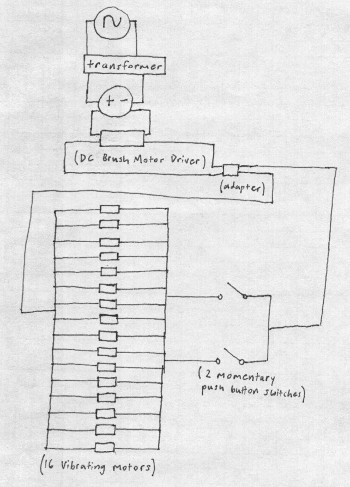 transformer
+ -
(DC Brush Motor Driver)
(adapter)
(2 momentary
push button switches)
(16 Vibrating motors)